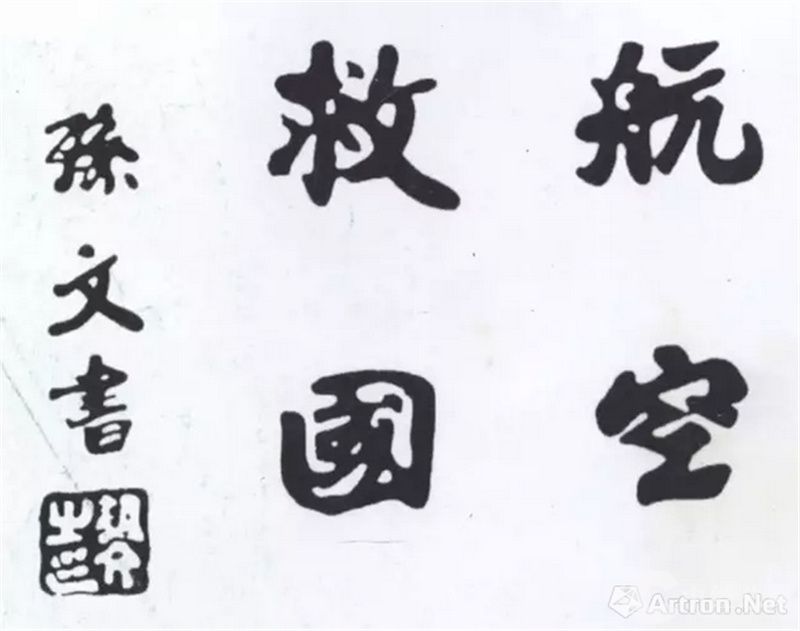 航空
救國
孫文書
孫文之印
Artron.Net